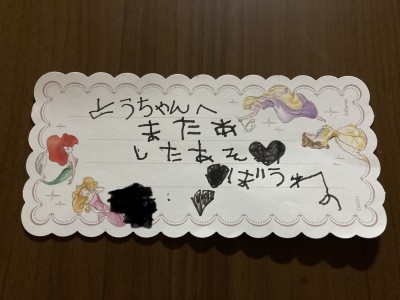 とうちゃんへ
またあ
したあそ♥
♥ぼうねへの